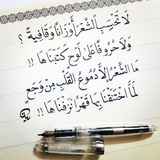 لَا تَحْسَبِ الشِّعْرَ أَوْزَانًا وَقَافِيَةً ؟
وَلَا حُرُوفًا عَلَى لَوْحٍ كَتَبْنَاهَا !!
مَا الشِّعْرُ إِلَّا دُمُوعُ القَلْبِ مِنْ وَجَعٍ
لَمَّا اخْتَنَقْنَا بِهَا قَهْرًا نَزَفْنَاهَا !!